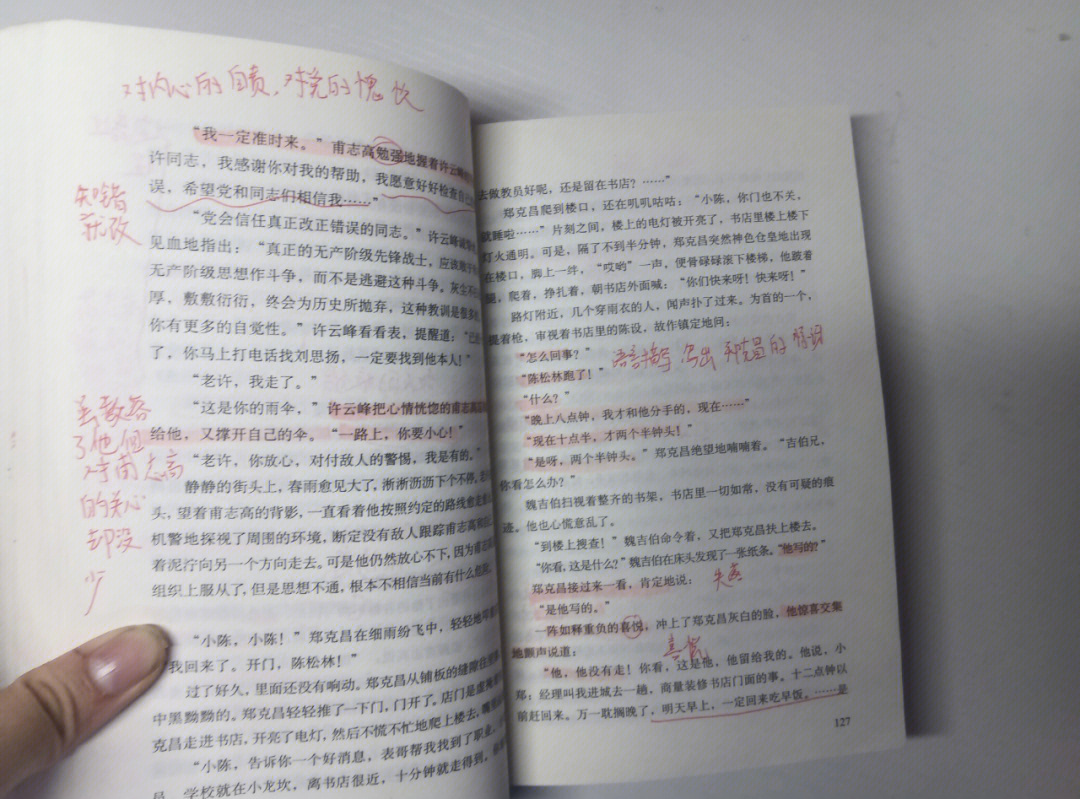 对内心的自责，对党的愧忱
“我一定准时来。”甫志高勉强地握着许云峰
许同志，我感谢你对我的帮助，我愿意好好检查自己
误，希望党和同志们相信我……”
知错
就改
“党会信任真正改正错误的同志。”许云峰
见血地指出：“真正的无产阶级先锋战士，应该敢于
无产阶级思想作斗争，而不是逃避这种斗争。灰尘不
厚，敷敷衍衍，终会为历史所抛弃，这种教训是很多
你有更多的自觉性。”许云峰看看表，提醒道：“已
了，你马上打电话找刘思扬，一定要找到他本人！”
“老许，我走了。”
“这是你的雨伞，”许云峰把心情恍惚的甫志高
给他，又撑开自己的伞。“一路上，你要小心！”
“老许，你放心，对付敌人的警惕，我是有的。”
静静的街头上，春雨愈见大了，淅淅沥沥下个不停，
头，望着甫志高的背影，一直看着他按照约定的路线愈走
机警地探视了周围的环境，断定没有敌人跟踪甫志高和
着泥泞向另一个方向走去。可是他仍然放心不下，因为甫志高
组织上服从了，但是思想不通，根本不相信当前有什么危险。
虽教答
了他但
对甫志高
的关心
却没
少
“小陈，小陈！”郑克昌在细雨纷飞中，轻轻地叩
我回来了。开门，陈松林！”
过了好久，里面还没有响动。郑克昌从铺板的缝隙往
中黑黝黝的。郑克昌轻轻推了一下门，门开了。店门是虚掩
克昌走进书店，开亮了电灯，然后不慌不忙地爬上楼去，嘴里
“小陈，告诉你一个好消息，表哥帮我找到了职业，
员。学校就在小龙坎，离书店很近，十分钟就走得到，
去做教员好呢，还是留在书店？……”
郑克昌爬到楼口，还在叽叽咕咕：“小陈，你门也不关，
就睡啦……”片刻之间，楼上的电灯被开亮了，书店里楼上楼下
灯火通明。可是，隔了不到半分钟，郑克昌突然神色仓皇地出现
在楼口，脚上一绊，“哎哟”一声，便骨碌碌滚下楼梯，他跛着
腿，爬着，挣扎着，朝书店外面喊：“你们快来呀！快来呀！”
路灯附近，几个穿雨衣的人，闻声扑了过来。为首的一个，
提着枪，审视着书店里的陈设，故作镇定地问：
“怎么回事？”
语言描写 写出郑克昌的
“陈松林跑了！”
“什么？”
“晚上八点钟，我才和他分手的，现在……”
“现在十点半，才两个半钟头！”
“是呀，两个半钟头。”郑克昌绝望地喃喃着。“吉伯兄，
你看怎么办？”
魏吉伯扫视着整齐的书架，书店里一切如常，没有可疑的痕
迹。他也心慌意乱了。
“到楼上搜查！”魏吉伯命令着，又把郑克昌扶上楼去。
“你看，这是什么？”魏吉伯在床头发现了一张纸条。“他写的？”
郑克昌接过来一看，肯定地说：
“是他写的。”
一阵如释重负的喜悦，冲上了郑克昌灰白的脸，他惊喜交集
地颤声说道：
喜悦
“他，他没有走！你看，这是他，他留给我的。他说，小
郑：经理叫我进城去一趟，商量装修书店门面的事。十二点钟以
前赶回来。万一耽搁晚了，明天早上，一定回来吃早饭。……是
127